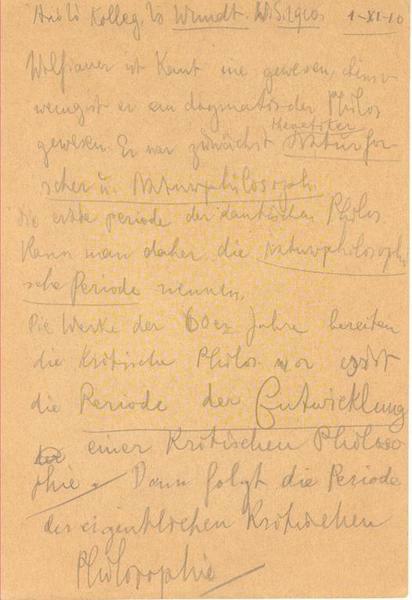 Kolleg. Wundt. W.S. 1910. 1-XI-10
Wolfianer ist Kant nie gewesen, ebenso
wenig ist er ein dogmatischer Philos
gewesen. Er war zunächst Naturfor-
theoretiker
scher u. Naturphilosoph.
Die erste periode der kantischen Philos.
Kann man daher die naturphilosophi
sche Periode nennen.
Die Werke der 60er Jahre bereiten
die Kritische Philos. vor
die Periode der Entwicklung
einer Kritischen Philoso
phie. Dann folgt die Periode
der eigentlichen Kritischen
Philosophie